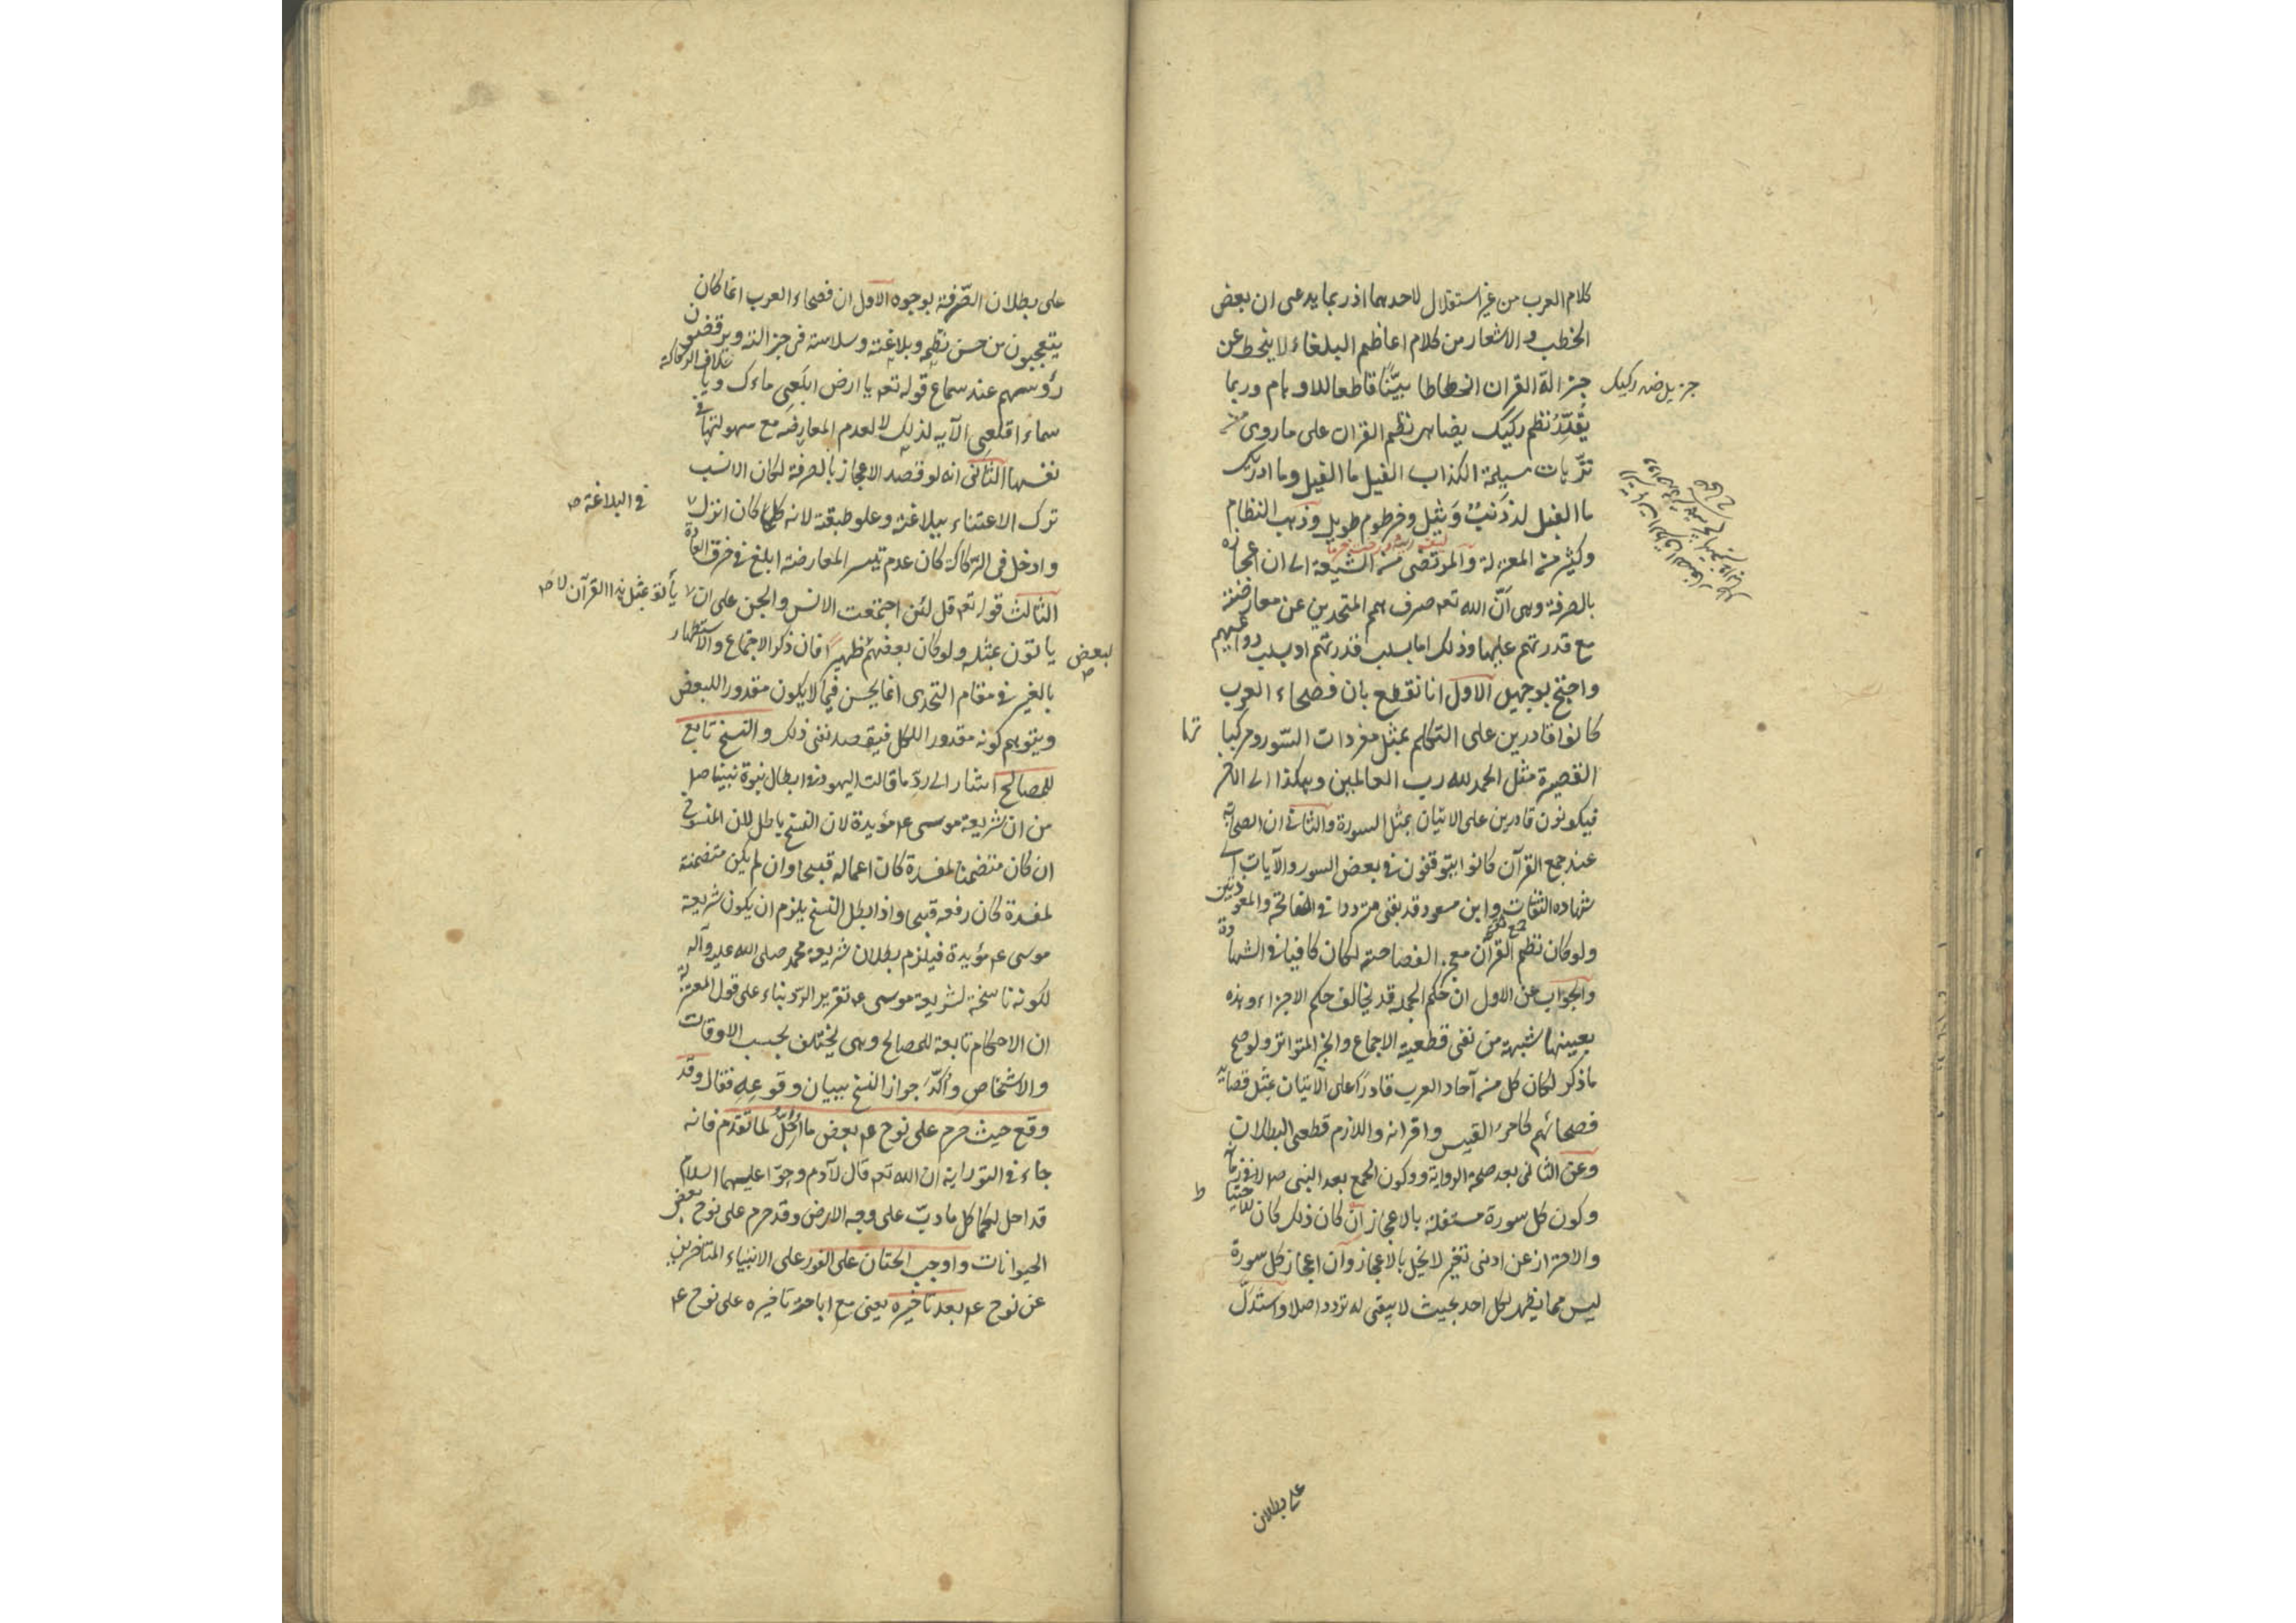 كلام العرب من غير استقلال لاحدهما اذ ربما يدعى ان بعض
الخطب والاشعار من كلام اعاظم البلغاء لا ينحط عن
جزالة القران انحطاطا بيّنًا قاطعا للاوهام وربما
جزيل ضد ركيك
يُقَدَّرُ نظم ركيك يضاهى نظم القران على ما روى من
ترّهات مسيلمة الكذاب الفيل ما الفيل وما ادريك
ما الفيل له ذَنَبٌ وَثِيل وخرطوم طويل وذهب النظام
وكثير من المعتزلة والمرتضى من الشيعة الى ان اعجازه
بالصرفة وهى انّ الله تعه صرف همم المتحدين عن معارضته
مع قدرتهم عليها وذلك اما بسلب قدرتهم او بسلب دواعيهم
واحتج بوجهين الاول انا نقطع بان فصحاء العرب
كانوا قادرين على التكلم بمثل مفردات السّور ومركبا تها
القصيرة مثل الحمد لله رب العالمين وهكذا الى الاخر
فيكونون قادرين على الاتيان بمثل السورة والثانى ان الصحابة
عند جمع القرآن كانوا يتوقفون فى بعض السور والآيات الى
شهادة الثقات وابن مسعود قد بقى مترددا فى الفاتحة والمعوذتين
ولو كان نظم القرآن معجز الفصاحته لكان كافيا فى الشهادة
والجواب عن الاول ان حكم الجملة قد يخالف حكم الاجزاء وهذه
بعينها شبهة من نفى قطعية الاجماع والخبر المتواتر ولو صح
ما ذكر لكان كل من آحاد العرب قادرًا على الاتيان بمثل قصايد
فصحائهم كامرئ القيس واقرانه واللازم قطعى البطلان
وعن الثانى بعد صحة الرواية وكون الجمع بعد النبى صم لا فى زمانه
وكون كل سورة مستقلة بالاعجاز ان كان ذلك كان للاحتياط
والاحتراز عن ادنى تغير لا يخل بالاعجاز وان اعجاز كل سورة
ليس مما يظهر لكل احد بحيث لا يبقى له تردد اصلا واستدلّ
على بطلان
على بطلان الصّرفة بوجوه الاول ان فصحاء العرب انما كان
يتعجبون من حسن نظمه وبلاغته وسلاسته فى جزالته ويرقصون
خلاف الركاكة
رؤسهم عند سماع قوله تعه يا ارض ابلعى ماءك ويا
سماء اقلعى الآيه لذلك لا لعدم المعارضة مع سهولتها فى
نفسها الثانى انه لو قصد الاعجاز بالصرفة لكان الانسب
ترك الاعتناء ببلاغته وعلو طبقته لانه كلما كان انزل
فى البلاغة صح
وادخل فى الركاكة كان عدم تيسر المعارضة ابلغ فى خرق العادة
الثالث قوله تعه قل لئن اجتمعت الانس والجن على ان
يأتو بمثل هذا القرآن لا صح
ياتون بمثله ولو كان بعضهم ظهيرًا فان ذكر الاجتماع والاستظهار
لبعض صح
بالغير فى مقام التحدى انما يحسن فيما لا يكون مقدورا للبعض
ويتوهم كونه مقدورا للكل فيقصد نفى ذلك والنسخ تابع
للمصالح اشار الى ردّ ما قالت اليهود فى ابطال نبوة نبينا صم
من ان شريعة موسى عم مؤيدة لان النسخ باطل لان المنسوخ
ان كان متضمنا لمفسدة كان اعماله قبيحا وان لم يكن متضمنة
لمفسدة كان رفعه قبيحا واذا بطل النسخ يلزم ان يكون شريعة
موسى عم مؤيدة فيلزم بطلان شريعة محمد صلى الله عليه وآله
لكونه ناسخة لشريعة موسى عم تقرير الرد بناء على قول المعتزلة
ان الاحكام تابعة للمصالح وهى يختلف بحسب الاوقات
والاشخاص وأكّد جواز النسخ ببيان وقوعه فقال وقد
وقع حيث حرم على نوح عم بعض ما أحلّ لما تقدم فانه
جاء فى التوراية ان الله تعه قال لآدم وحوّا عليهما السلام
قد احل لكما كل ما دبّ على وجه الارض وقد حرم على نوح بعض
الحيوانات واوجب الختان على الفور على الانبياء المتاخرين
عن نوح عم بعد تاخيره يعنى مع اباحة تاخيره على نوح عم